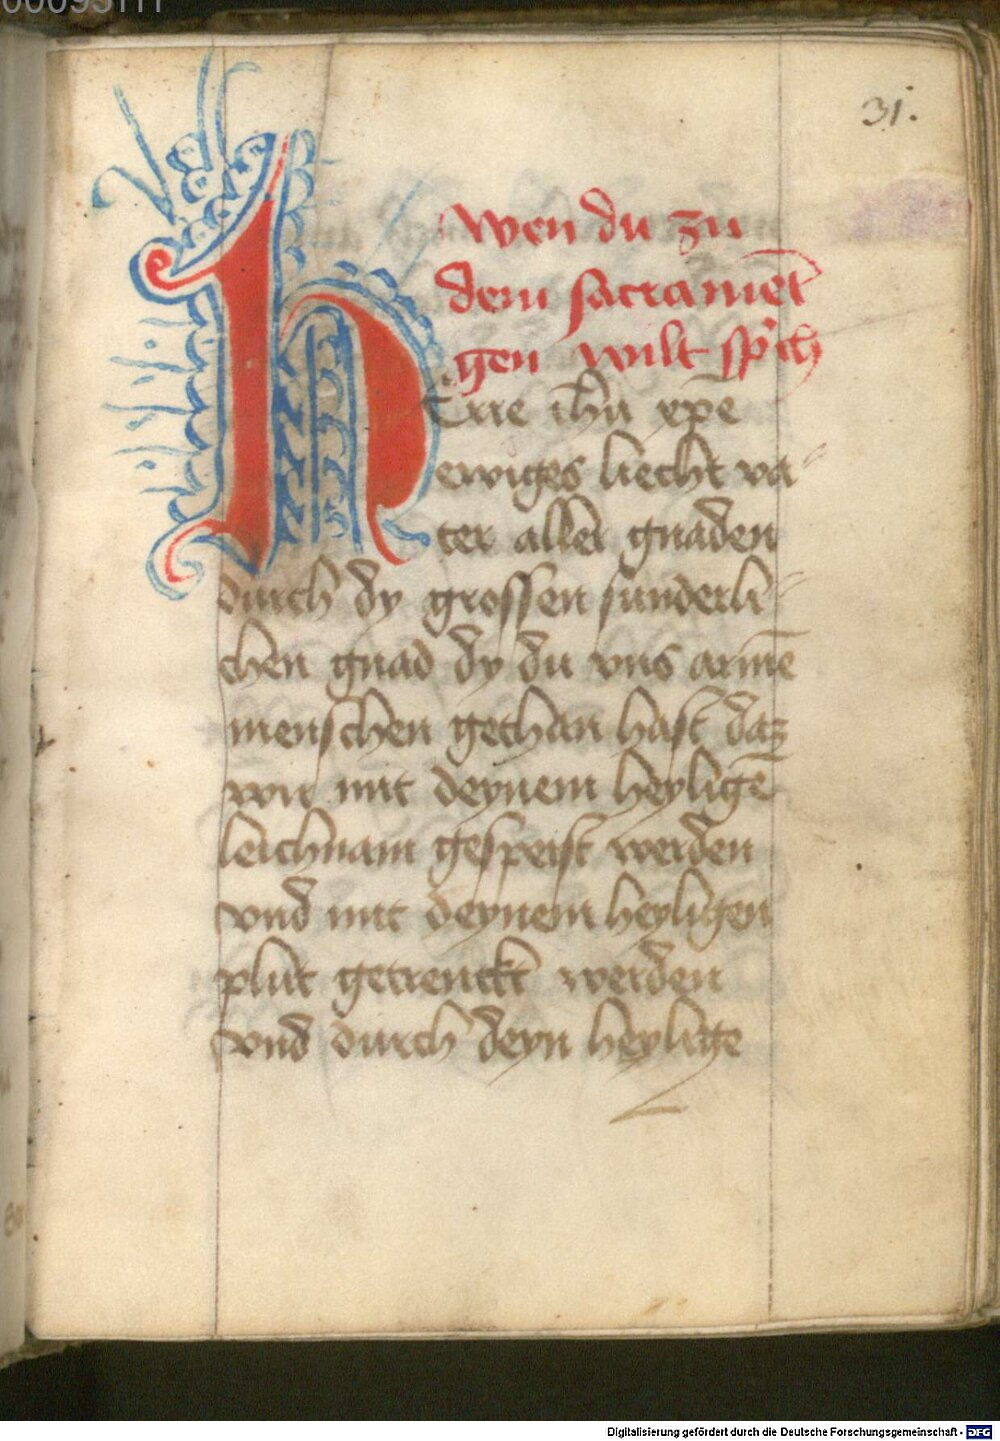 31.
wen du zu
dem sacramēt
gen wilt sp̄ch
HErre ih̄u xp̄e
ewiges liecht va-
ter aller gnaden
durch dy grossen sunderli-
chen gnad dy du vns armē
menschen gethan hast daz
wir mit deynem heyligē
leichnam gespeist werden
vnd mit deynem heyligen
plut getrenckt werden
vnd durch deyn heylige
Digitalisierung gefördert durch die Deutsche Forschungsgemeinschaft - DFG